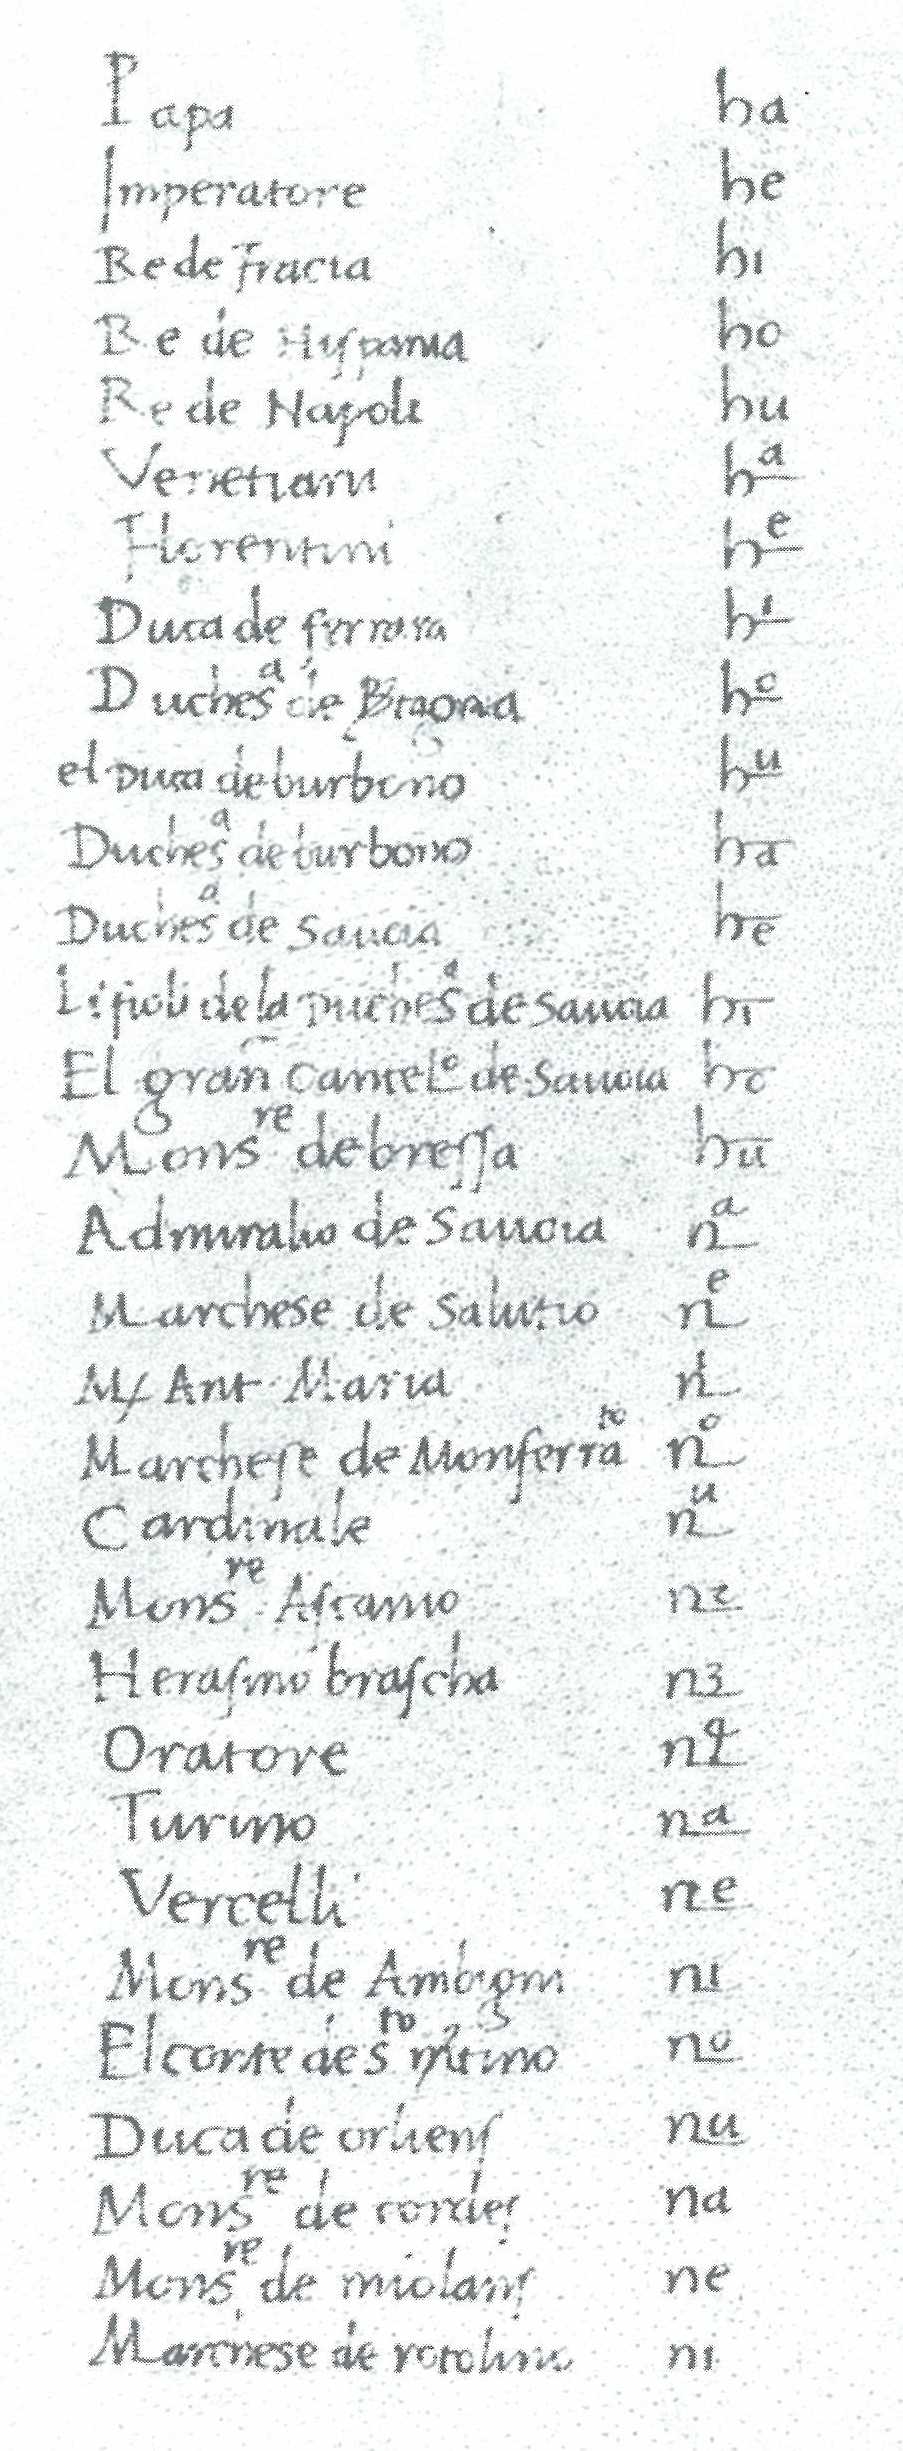 Papa ha
Imperatore he
Re de Fracia hi
Re de Hyspania ho
Re de Napoli hu
Venetiani hᵃ
Florentini hᵉ
Duca de ferrara hⁱ
Duchesᵃ de Bragonia hᵒ
el Duca de burbono hᵘ
Duchesᵃ de burbono ha
Duchesᵃ de Sauoia he
Li fioli de la Duchesᵃ de Sauoia hi
El gran Cancelᵒ de Sauoia ho
Monsʳᵉ de bressa hu
Admiralio de Sauoia nᵃ
Marchese de Salutio nᵉ
M Ant Maria nⁱ
Marchese de Monferraᵗᵒ nᵒ
Cardinale nᵘ
Monsʳᵉ Ascanio n2
Herasmo brascha n3
Oratore
Turino na
Vercelli ne
Monsʳᵉ de ni
El conte de sᵗᵒ mtino no
Duca de orliens nu
Monsʳᵉ de cordes na
Monsʳᵉ de miolans ne
Marchese de rotolino ni